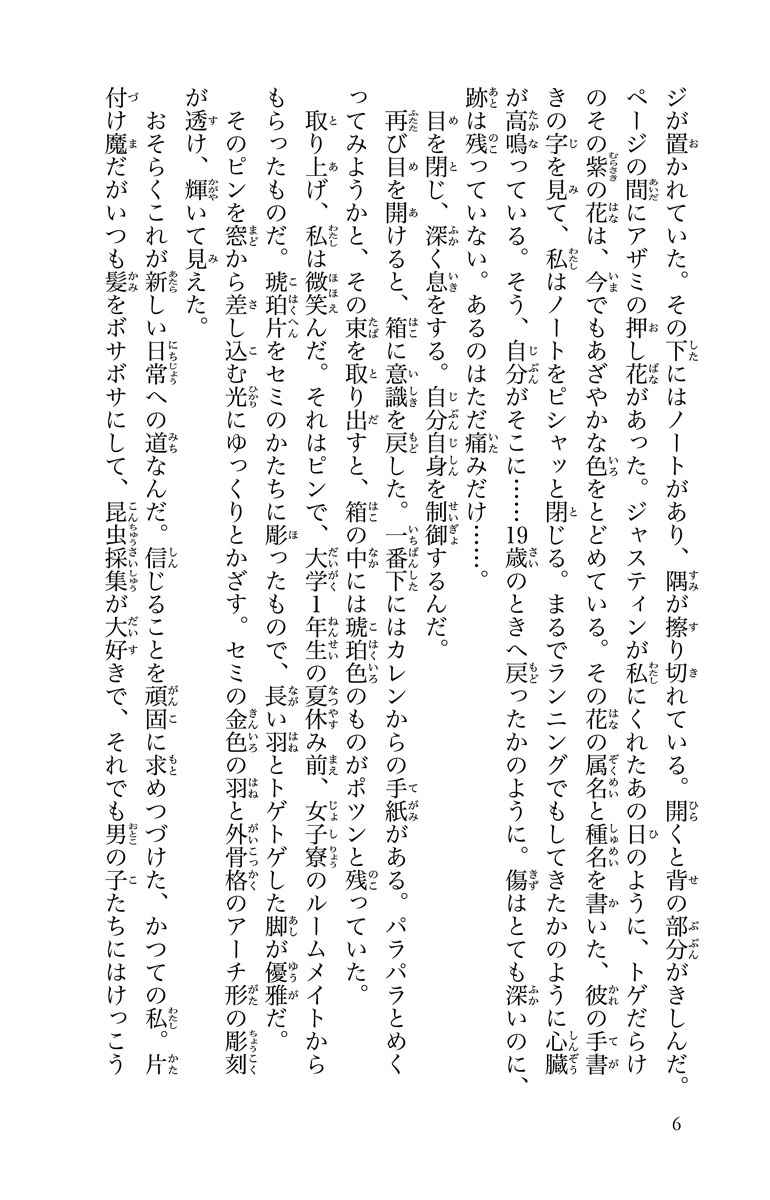 ジが置かれていた。その下にはノートがあり、隅が擦り切れている。開くと背の部分がきしんだ。
ページの間にアザミの押し花があった。ジャスティンが私にくれたあの日のように、トゲだらけ
のその紫の花は、今でもあざやかな色をとどめている。その花の属名と種名を書いた、彼の手書
きの字を見て、私はノートをピシャッと閉じる。まるでランニングでもしてきたかのように心臓
が高鳴っている。そう、自分がそこに……19歳のときへ戻ったかのように。傷はとても深いのに、
跡は残っていない。あるのはただ痛みだけ……。
目を閉じ、深く息をする。自分自身を制御するんだ。
再び目を開けると、箱に意識を戻した。一番下にはカレンからの手紙がある。パラパラとめく
ってみようかと、その束を取り出すと、箱の中には琥珀色のものがポツンと残っていた。
取り上げ、私は微笑んだ。それはピンで、大学1年生の夏休み前、女子寮のルームメイトから
もらったものだ。琥珀片をセミのかたちに彫ったもので、長い羽とトゲトゲした脚が優雅だ。
そのピンを窓から差し込む光にゆっくりとかざす。セミの金色の羽と外骨格のアーチ形の彫刻
が透け、輝いて見えた。
おそらくこれが新しい日常への道なんだ。信じることを頑固に求めつづけた、かつての私。片
付け魔だがいつも髪をボサボサにして、昆虫採集が大好きで、それでも男の子たちにはけっこう
6